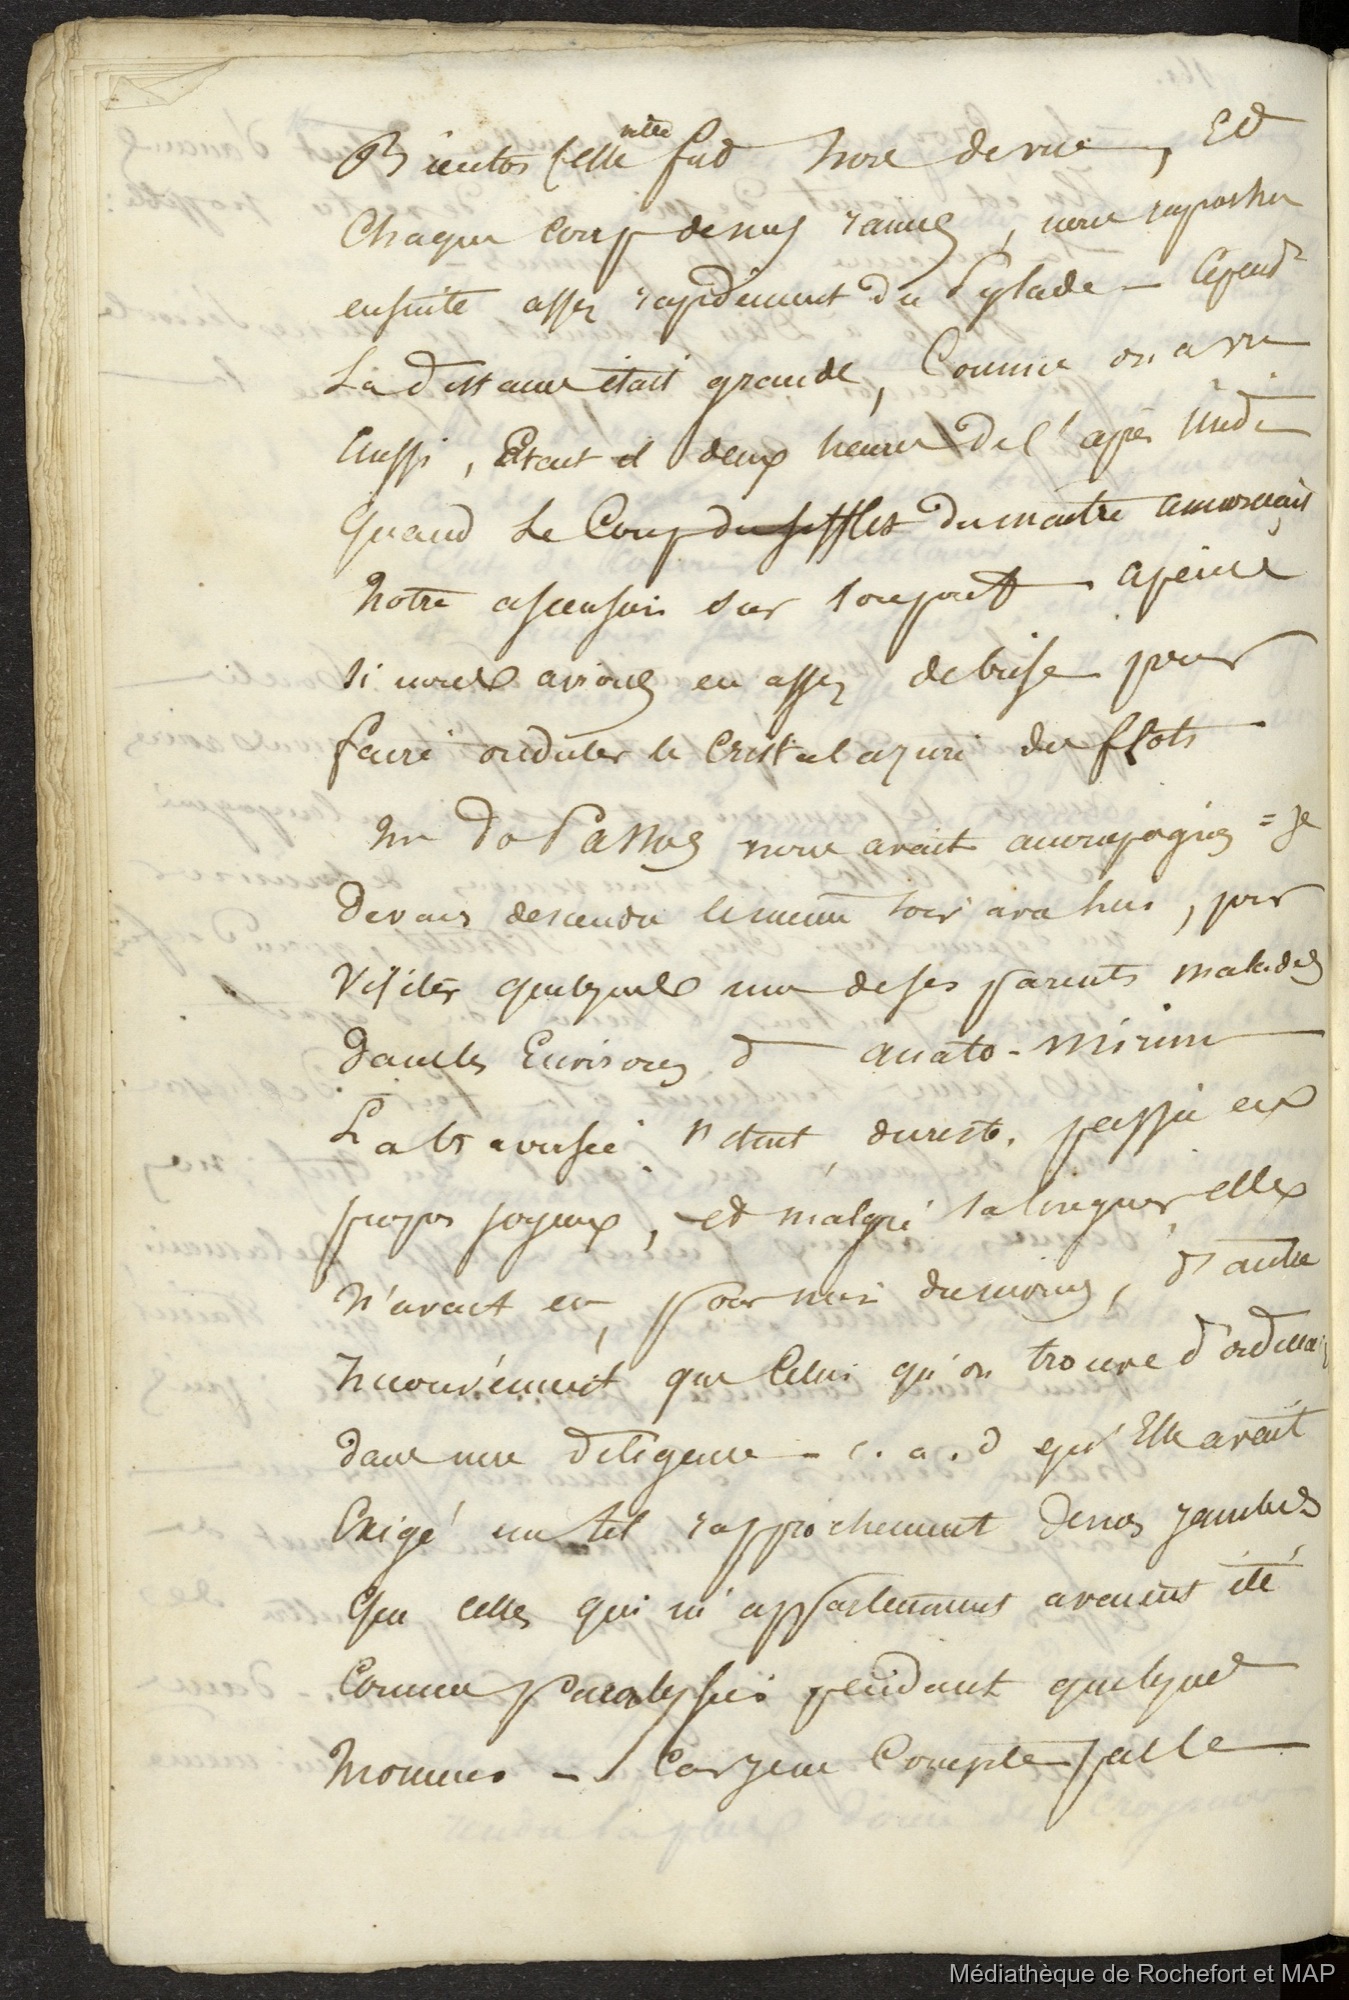 Bientot celle fut hors de vue, Et
Chaque coup de nos rames, nous raprocha
ensuite assez rapidement du Pylade - Cepend.t
La distance était grande, Comme on a vu
Aussi, Etait il deux heures de l'après midi
Quand Le Coup de sifflet du maitre annoncait
Notre ascension sur son pont - a peine
si nous avions eu assez de brise pour
faire onduler le Cristal azuré des flots
Mr Do Passos nous avait accompagnés = Je
devais descendre le même soir avec lui, pour
Visiter quelques uns de ses parents malades
dans les Environs d' Anato-mirim
La traversée s'était, du reste, passée en
propos joyeux, et malgré sa longueur elle
N'avait eu, pour moi du moins, d'autre
Inconvénient que Celui qu'on trouve d'ordinaire
dans une diligence - c. a. d qu'Elle avait
Exigé un tel rapprochement de nos jambes
Que celles qui m'appartiennent avaient été
Comme paralysées pendant quelques
Momens - Car je ne Compte pas le
Médiathèque de Rochefort et MAP